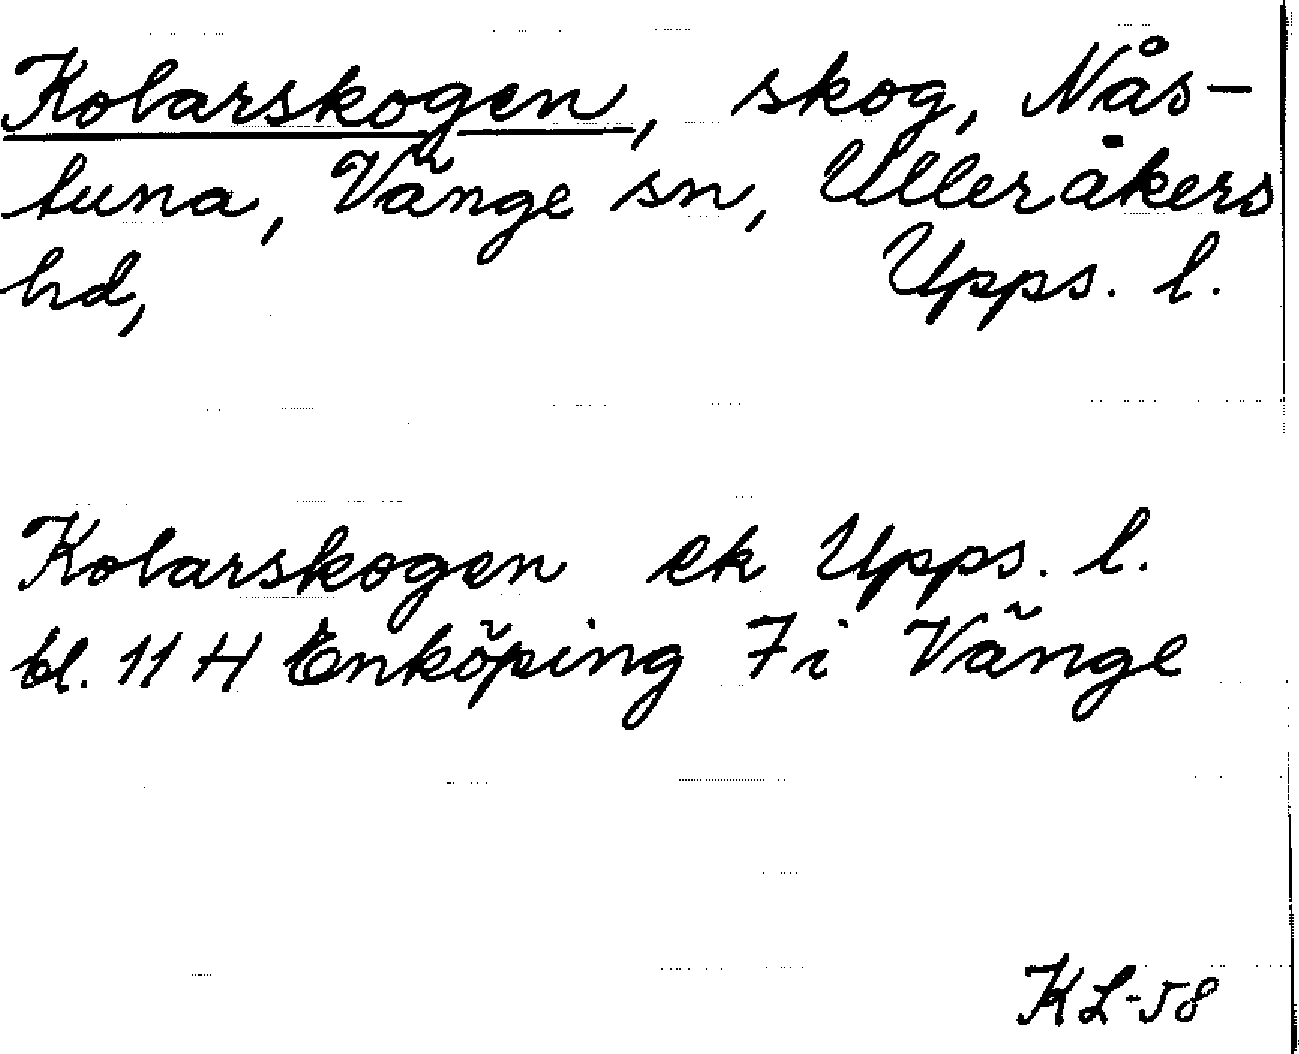 Kolarskogen, skog, Nås-
tuna, Vänge sn, Ulleråkers
hd, Upps. l.
Kolarskogen ek Upps. l.
bl. 11 H Enköping 7i Vänge
KL-58